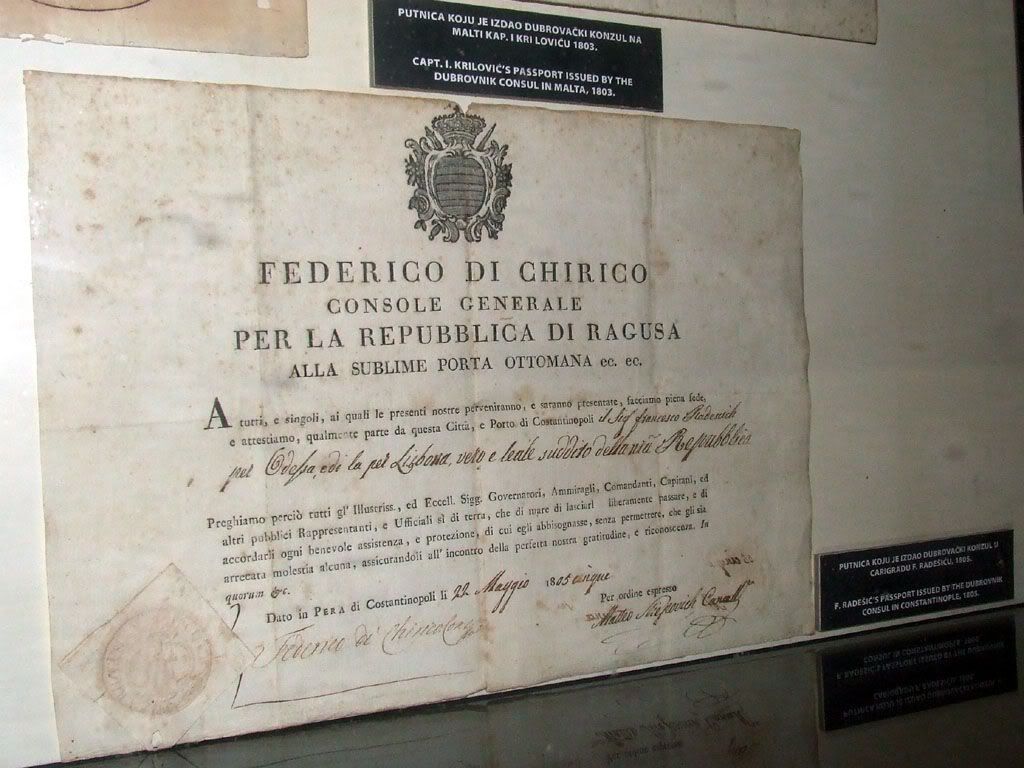 PUTNICA KOJU JE IZDAO DUBROVAČKI KONZUL NA
MALTI KAP. I KRI LOVIĆU 1803.
CAPT. I. KRILOVIĆ'S PASSPORT ISSUED BY THE
DUBROVNIK CONSUL IN MALTA, 1803.
FEDERICO DI CHIRICO
CONSOLE GENERALE
PER LA REPUBBLICA DI RAGUSA
ALLA SUBLIME PORTA OTTOMANA ec. ec.
A tutti, e singoli, ai quali le presenti nostre perveniranno, e saranno presentate, facciamo piena fede,
e attestiamo, qualmente parte da questa Città, e Porto di Costantinopoli il Sig Francesco
per Odessa, e di la per Lisbona, vero e leale suddito della Repubblica
Preghiamo perciò tutti gl' Illustriss., ed Eccell. Sigg. Governatori, Ammiragli, Comandanti, Capitani, ed
altri pubblici Rappresentanti, e Ufficiali sì di terra, che di mare di lasciarl liberamente passare, e di
accordarli ogni benevole assistenza, e protezione, di cui egli abbisognasse, senza permettere, che gli sia
arrecata molestia alcuna, assicurandoli all' incontro della perfetta nostra gratitudine, e riconoscenza. In
quorum &c.
Dato in PERA di Costantinopoli li 22 Maggio 1805 cinque
Per ordine espresso
Federico di Chirico
Matteo
PUTNICA KOJU JE IZDAO DUBROVAČKI KONZUL U
CARIGRADU F. RADEŠIĆU, 1805.
F. RADEŠIĆ'S PASSPORT ISSUED BY THE DUBROVNIK
CONSUL IN CONSTANTINOPLE, 1805.